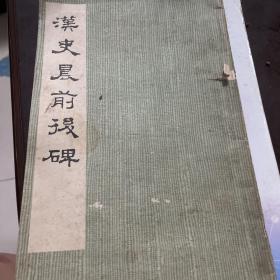 漢史晨前後碑